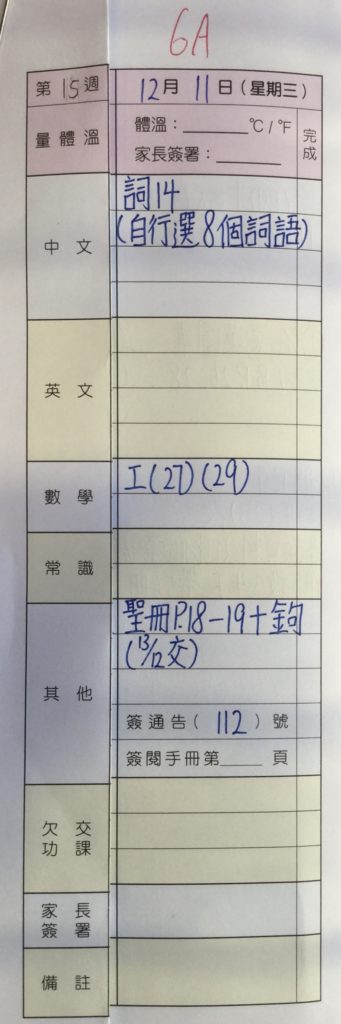 6A
第15週 12月11日(星期三)
量體溫 體溫:______°C/°F 完成
家長簽署:______
中文 詞14
(自行選8個詞語)
英文
數學 工(27)(29)
常識
其他 聖冊P.18-19+鉤
(13/12交)
簽通告(112)號
簽閱手冊第____頁
欠交功課
家長簽署
備註